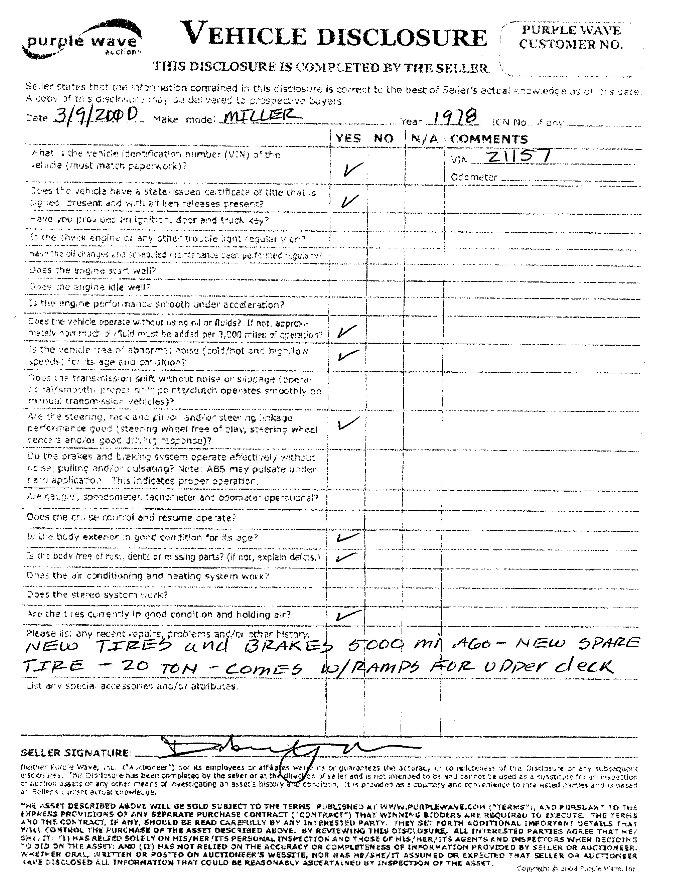 purple wave
auction
VEHICLE DISCLOSURE
PURPLE WAVE
CUSTOMER NO.
THIS DISCLOSURE IS COMPLETED BY THE SELLER
Seller states that the information contained in this disclosure is correct to the best of Seller's actual knowledge as of this date.
A copy of this disclosure may be delivered to prospective buyers.
Date 3/9/2000 Make model MILLER Year 1978 ICN No. if any
YES NO N/A COMMENTS
What is the vehicle identification number (VIN) of the
vehicle (must match paperwork)? ✓ VIN 21157
Odometer
Does the vehicle have a state issued certificate of title that is
signed, present and with all lien releases present? ✓
Have you provided an ignition, door and truck key?
Is the check engine or any other trouble light regularly on?
Have the oil changes and scheduled maintenance been performed regularly?
Does the engine start well?
Does the engine idle well?
Is the engine performance smooth under acceleration?
Does the vehicle operate without using oil or fluids? If not, approxi-
mately how much of fluid must be added per 3,000 miles of operation? ✓
Is the vehicle free of abnormal noise (cold/hot and high/low
speeds) for its age and condition? ✓
Does the transmission shift without noise or slippage
manual transmission vehicles)?
Are the steering, rack and pinion and/or steering linkage
performance good (steering wheel free of play, steering wheel
centers and/or good driving response)? ✓
Do the brakes and braking system operate effectively without
noise, pulling and/or pulsating? Note: ABS may pulsate under
hard application. This indicates proper operation.
Are gauges, speedometer, tachometer and odometer operational?
Does the cruise control and resume operate?
Is the body exterior in good condition for its age? ✓
Is the body free of rust, dents or missing parts? (if not, explain defects.) ✓
Does the air conditioning and heating system work?
Does the stereo system work?
Are the tires currently in good condition and holding air? ✓
Please list any recent repairs, problems and/or other history.
NEW TIRES and BRAKES 5000 mi AGO - NEW SPARE
TIRE - 20 TON - COMES W/RAMPS FOR UPPer deck
List any special accessories and/or attributes.
SELLER SIGNATURE:
Neither Purple Wave, Inc. ("Auctioneer") nor its employees or affiliates warrants or guarantees the accuracy or completeness of this Disclosure or any subsequent
disclosures. This Disclosure has been completed by the seller or at the direction of seller and is not intended to be and cannot be used as a substitute for an inspection
of auction assets or any other means of investigating an asset's history and condition. It is provided as a courtesy and convenience to interested parties and is based
on Seller's current actual knowledge.
THE ASSET DESCRIBED ABOVE WILL BE SOLD SUBJECT TO THE TERMS PUBLISHED AT WWW.PURPLEWAVE.COM ("TERMS"), AND PURSUANT TO THE
EXPRESS PROVISIONS OF ANY SEPARATE PURCHASE CONTRACT ("CONTRACT") THAT WINNING BIDDERS ARE REQUIRED TO EXECUTE. THE TERMS
AND THE CONTRACT, IF ANY, SHOULD BE READ CAREFULLY BY ANY INTERESTED PARTY. THEY SET FORTH ADDITIONAL IMPORTANT DETAILS THAT
WILL CONTROL THE PURCHASE OF THE ASSET DESCRIBED ABOVE. BY REVIEWING THIS DISCLOSURE, ALL INTERESTED PARTIES AGREE THAT HE/
SHE/IT: (I) HAS RELIED SOLELY ON HIS/HER/ITS PERSONAL INSPECTION AND THOSE OF HIS/HER/ITS AGENTS AND INSPECTORS WHEN DECIDING
TO BID ON THE ASSET; AND (II) HAS NOT RELIED ON THE ACCURACY OR COMPLETENESS OF INFORMATION PROVIDED BY SELLER OR AUCTIONEER,
WHETHER ORAL, WRITTEN OR POSTED ON AUCTIONEER'S WEBSITE, NOR HAS HE/SHE/IT ASSUMED OR EXPECTED THAT SELLER OR AUCTIONEER
HAVE DISCLOSED ALL INFORMATION THAT COULD BE REASONABLY ASCERTAINED BY INSPECTION OF THE ASSET.
Copyright © 2008 Purple Wave, Inc.